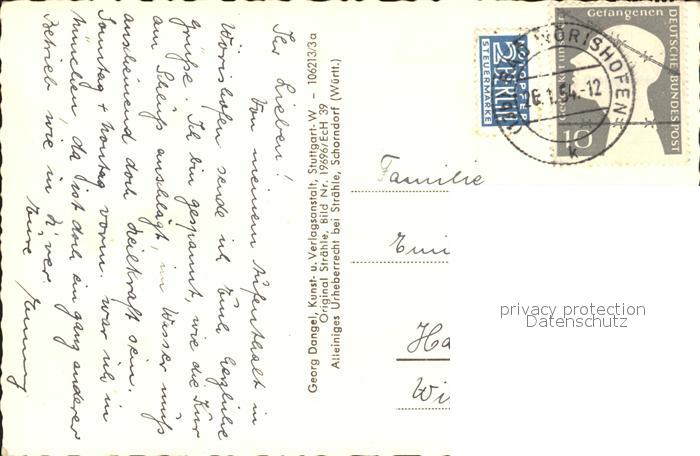 Ihr Lieben!
Von meinem Aufenthalt in
Wörishofen sende ich Euch herzliche
Grüße. Ich bin gespannt, wie die Kur
am Schluß anschlägt, im Wasser muß
anscheinend doch Heilkraft sein.
Samstag + Montag vorm. war ich in
München, da ist doch ein ganz anderer
Betrieb wie in H'ver.
Eure
Georg Dangel, Kunst- u. Verlagsanstalt, Stuttgart-W - 106213/3a
Original Strähle, Bild Nr. 19696/EcH 39
Alleiniges Urheberrecht bei Strähle, Schorndorf (Württ.)
NOTOPFER
2 BERLIN
STEUERMARKE
WÖRISHOFEN
6.1.54.-12
k
Gefangenen
DEUTSCHE BUNDESPOST
10
Familie
Ha
Wi
privacy protection
Datenschutz